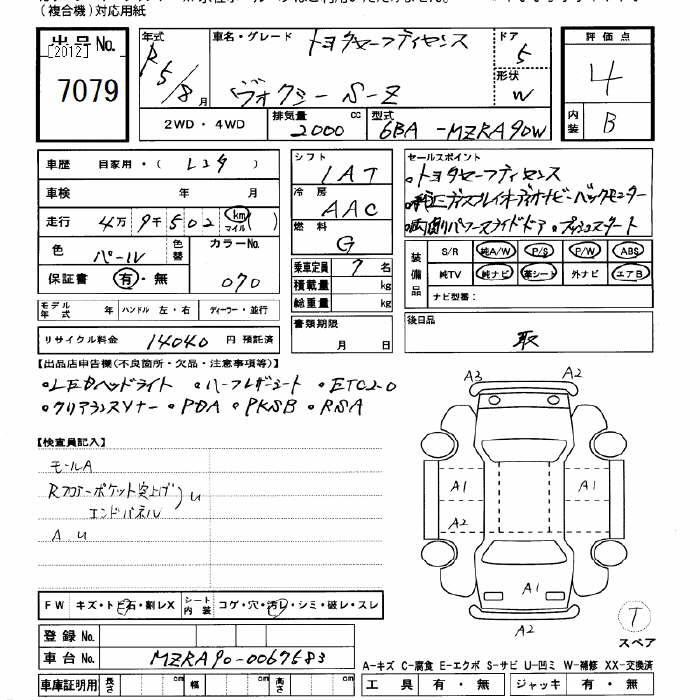 (複合機)対応用紙
出品No.
[2012]
7079
年式
R5/8月
車名・グレード
トヨタセーフティセンス
ヴォクシー S-Z
ドア
5
形状
W
評価点
4
内装
B
2WD・4WD
排気量
2000
cc
型式
6BA -MZRA90W
車歴 自家用・( レンタ )
車検 年 月
走行 4万 9千 5 0 2 km マイル
色 パール
色替
カラーNo.
070
保証書 有・無
モデル年式 年 ハンドル 左・右 ディーラー・並行
リサイクル料金 14040 円 預託済
シフト
IAT
冷房
AAC
燃料
G
乗車定員 7 名
積載量 kg
総重量 kg
書類期限
月 日
セールスポイント
・トヨタセーフティセンス
・純正ディスプレイオーディオナビ・バックモニター
・両側パワースライドドア ・プッシュスタート
装備品
S/R 純A/W P/S P/W ABS
純TV 純ナビ 革シート 外ナビ エアB
ナビ型番:
後日品
取
【出品店申告欄(不良箇所・欠品・注意事項等)】
・LEDヘッドライト ・ハーフレザーシート ・ETC2.0
・クリアランスソナー ・PDA ・PKSB ・RSA
【検査員記入】
モールA
Rフロアーポケット突上げ
エンドパネル
U
A U
A3 A2
A1 A1
A2
A1
A2
T
スペア
FW キズ・トビ石・割レX
シート内装 コゲ・穴・汚レ・シミ・破レ・スレ
登録No.
車台No. MZRA90-0067683
車庫証明用 長さ cm 幅 cm 高さ cm
A-キズ C-腐食 E-エクボ S-サビ U-凹ミ W-補修 XX-交換済
工具 有・無 ジャッキ 有・無